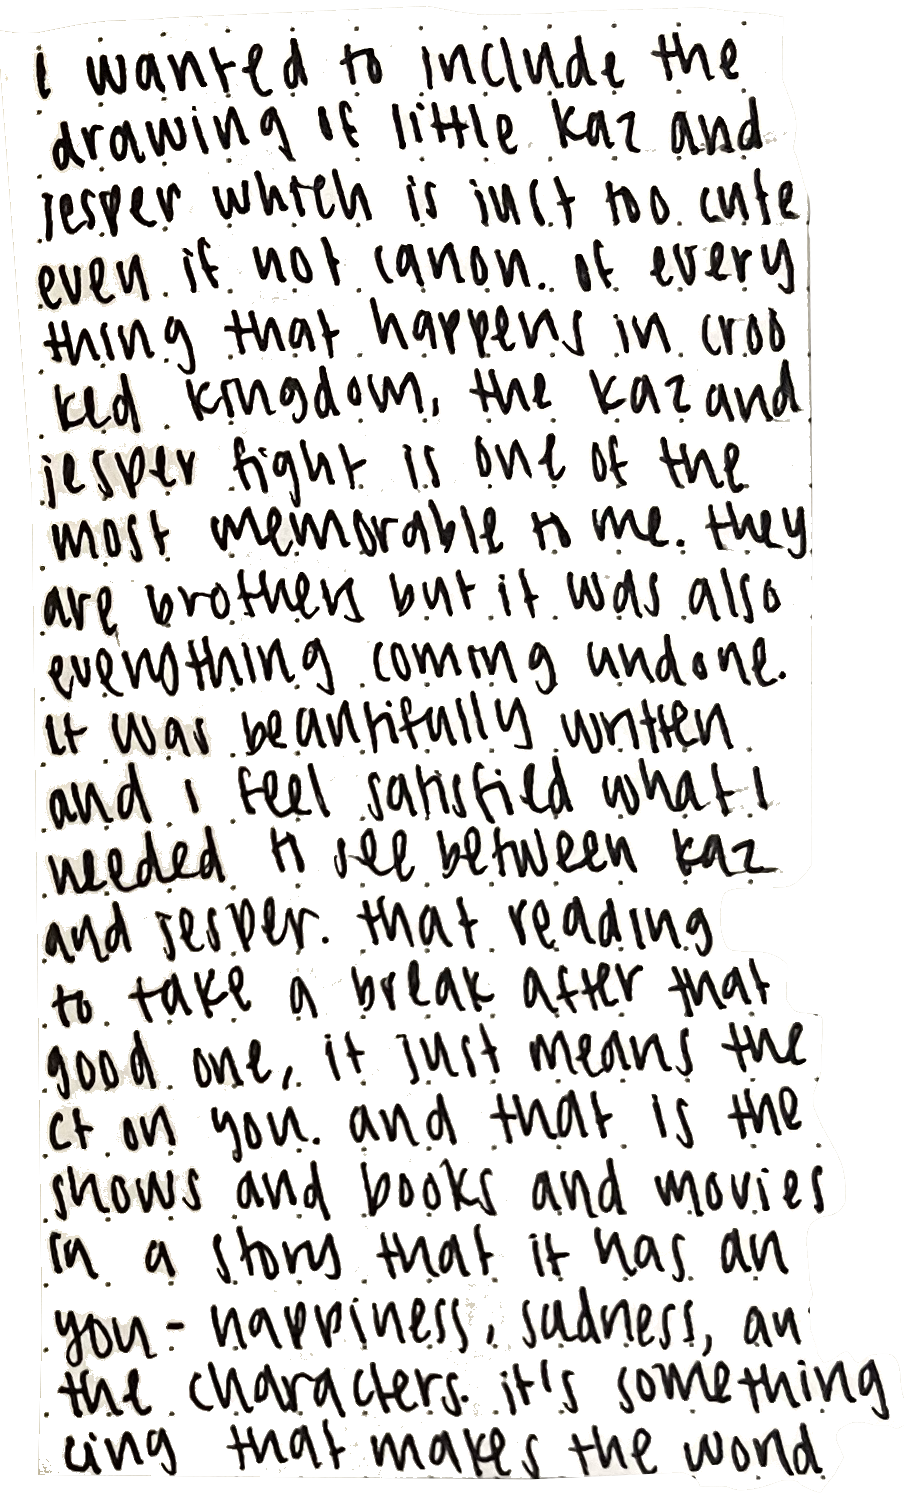 i wanted to include the
drawing of little kaz and
jesper which is just too cute
even if not canon. of every
thing that happens in croo
ked kingdom, the kaz and
jesper fight is one of the
most memorable to me. they
are brothers but it was also
everything coming undone.
it was beautifully written
and i feel satisfied what i
needed to see between kaz
and jesper. that reading
to take a break after that
good one, it just means the
ct on you. and that is the
shows and books and movies
in a story that it has an
you - happiness, sadness, an
the characters. it's something
cing that makes the world